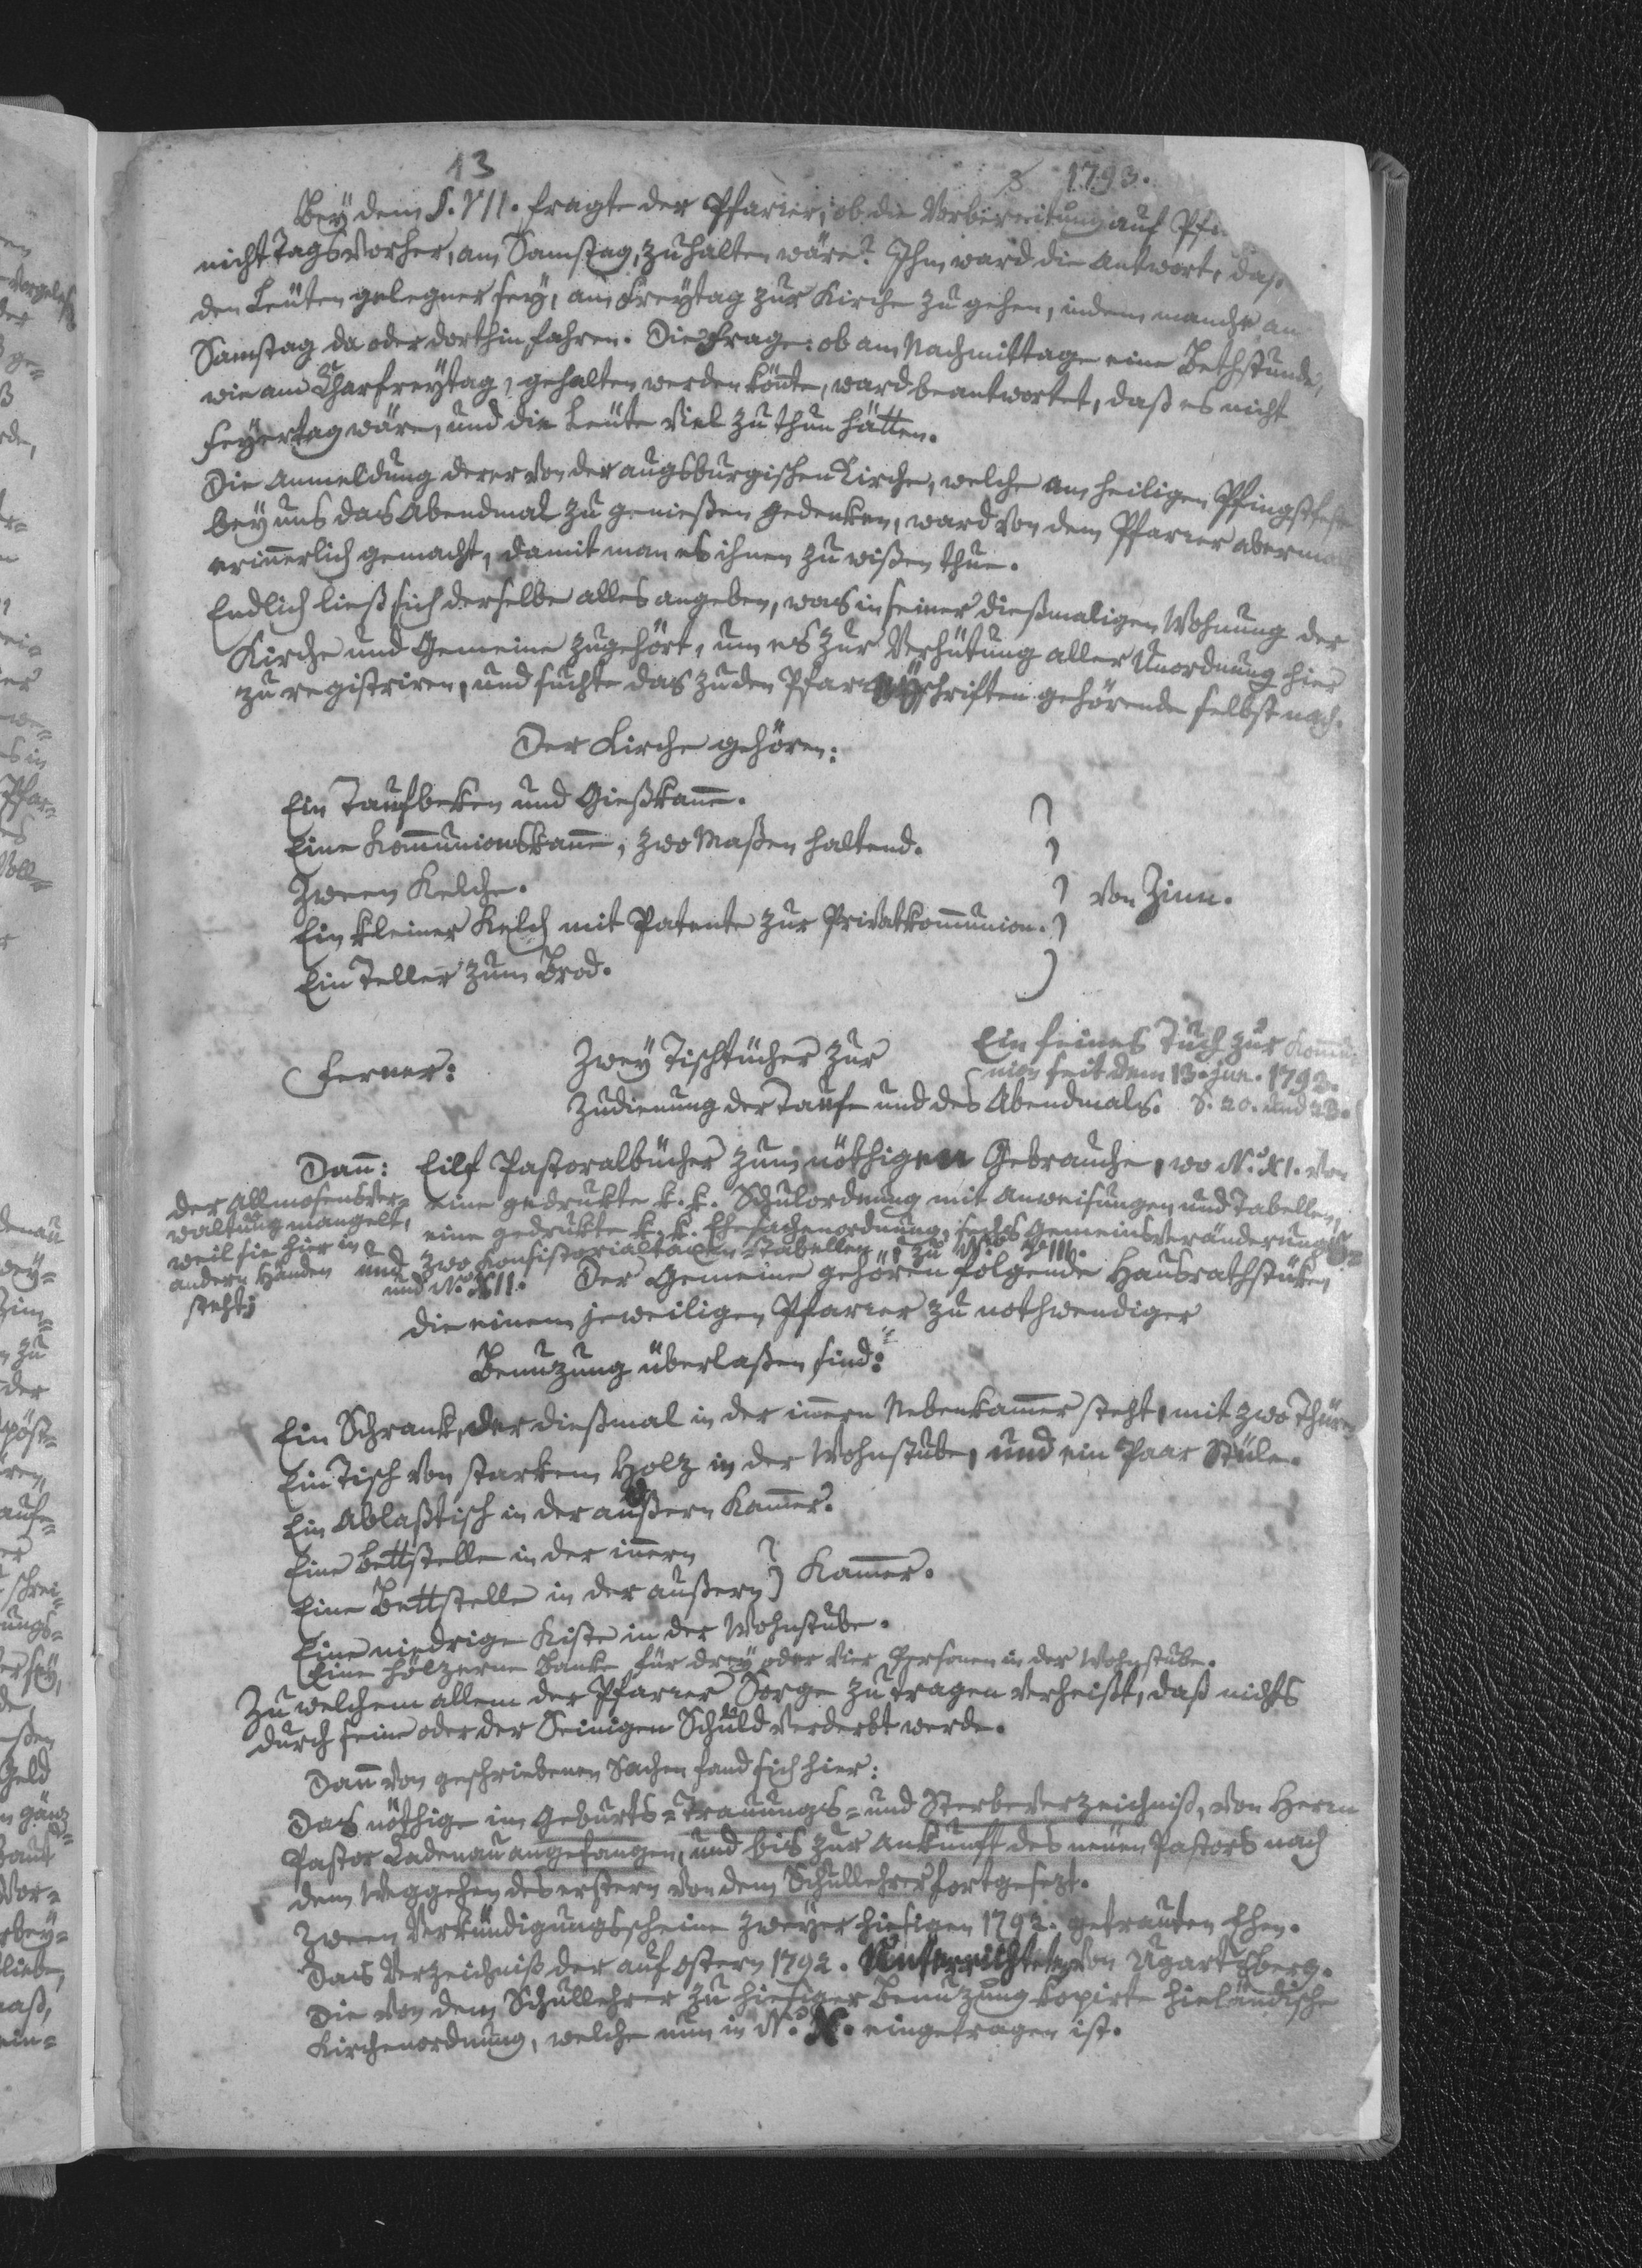 13
8 1793.
Bey dem §. VII. fragte der Pfarrer, ob die Vorbereitung auf Pfi
nicht Tags vorher, am Samstag, zu halten wäre? Ihm ward die Antwort, daß
den Leüten gelegner sey, am Freytag zur Kirche zu gehen, indem manche an
Samstag da oder dorthin fahren. Die Frage: ob am Nachmittage eine Bethstunde,
wie am Charfreytag, gehalten werden könte, ward beantwortet, daß es nicht
Feyertag wäre, und die Leüte viel zu thun hätten.
Die Anmeldung derer von der augsburgischen Kirche, welche am heiligen Pfingstfeste
bey uns das Abendmal zu genießen gedenken, ward von dem Pfarrer abermal
erinnerlich gemacht, damit man es ihnen zu wißen thue.
Endlich ließ sich derselbe alles angeben, was in seiner dießmaligen Wohnung der
Kirche und Gemeine zugehört, um es zur Verhütung aller Unordnung hier
zu registriren, und suchte das zu den Pfarrschriften gehörende selbst nach.
Der Kirche gehören:
Ein Taufbeken und Gießkanne.
Eine Kommunionskanne, zwo Maßen haltend.
Zween Kelche.
Ein kleiner Kelch mit Patente zur Privatkommunion.
Ein Teller zum Brod.
von Zinn.
Ferner:
Zwey Tischtücher zur
Zudienung der Taufe und des Abendmals.
Ein feines Tuch zur Kommu-
nion seit dem 13. Jun. 1793.
S. 20. und 23.
Dann: Eilf Pastoralbücher zum nöthigen Gebrauche, wo N.o XI. von
der Allmosensver-
waltung mangelt,
weil sie hier in
andern Händen
steht;
eine gedrukte k. k. Schulordnung mit Anweisungen und Tabellen,
eine gedrukte k. k. Ehesachenordnung, sechs Gemeinsveränderungs-
und zwo Konsistorialtaxen-Tabellen zu N.o VIII.
und N.o XII.
Der Gemeine gehören folgende Hausrathstüke,
die einem jeweiligen Pfarrer zu nothwendiger
Benuzung überlaßen sind:
Ein Schrank, der dießmal in der innern Nebenkammer steht, mit zwo Thüren
Ein Tisch von starkem Holz in der Wohnstube, und ein Paar Stüle.
Ein Ablaßtisch in der äußern Kammer.
Eine Bettstelle in der innern
Eine Bettstelle in der äußern
Kammer.
Eine niedrige Kiste in der Wohnstube.
Eine hölzerne Banke für drey oder vier Personen in der Wohnstube.
Zu welchem allem der Pfarrer Sorge zu tragen verheißt, daß nichts
durch seine oder der Seinigen Schuld verderbt werde.
Dann von geschriebenen Sachen fand sich hier:
Das nöthige im Geburts- Trauungs- und Sterbeverzeichniß, von Herrn
Pastor Ladenau angefangen, und bis zur Ankunft des neüen Pastors nach
dem Weggehen des erstern von dem Schullehrer fortgesezt.
Zween Verkündigungsscheine zweyer hiesigen 1792. getrauten Ehen.
Das Verzeichniß der auf Ostern 1792. Unterrichteten von Ugartsberg.
Die von dem Schullehrer zu hiesiger Benuzung kopirte hieländische
Kirchenordnung, welche nun in N.o X. eingetragen ist.